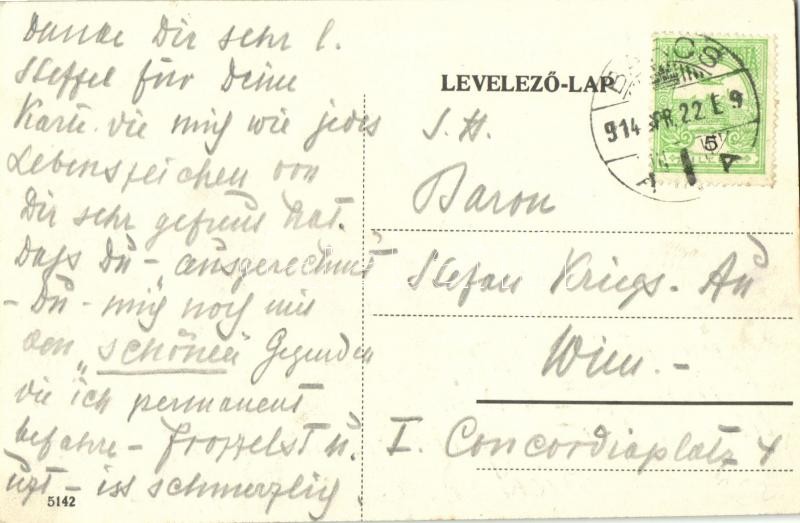 Danke Dir sehr l.
Steffel für Deine
Karte die mich wie jedes
Lebenszeichen von
Dir sehr gefreut hat.
Dass Du - ausgerechnet
- Du - mich noch mit
den "schönen" Gegenden
die ich permanent
befahre - frozzelst u.
uzt - ist schmerzlich
5142
LEVELEZŐ-LAP
914 APR. 22 E 9
5
S. H.
Baron
Stefan Kriegs-Au
Wien.-
I. Concordiaplatz 4